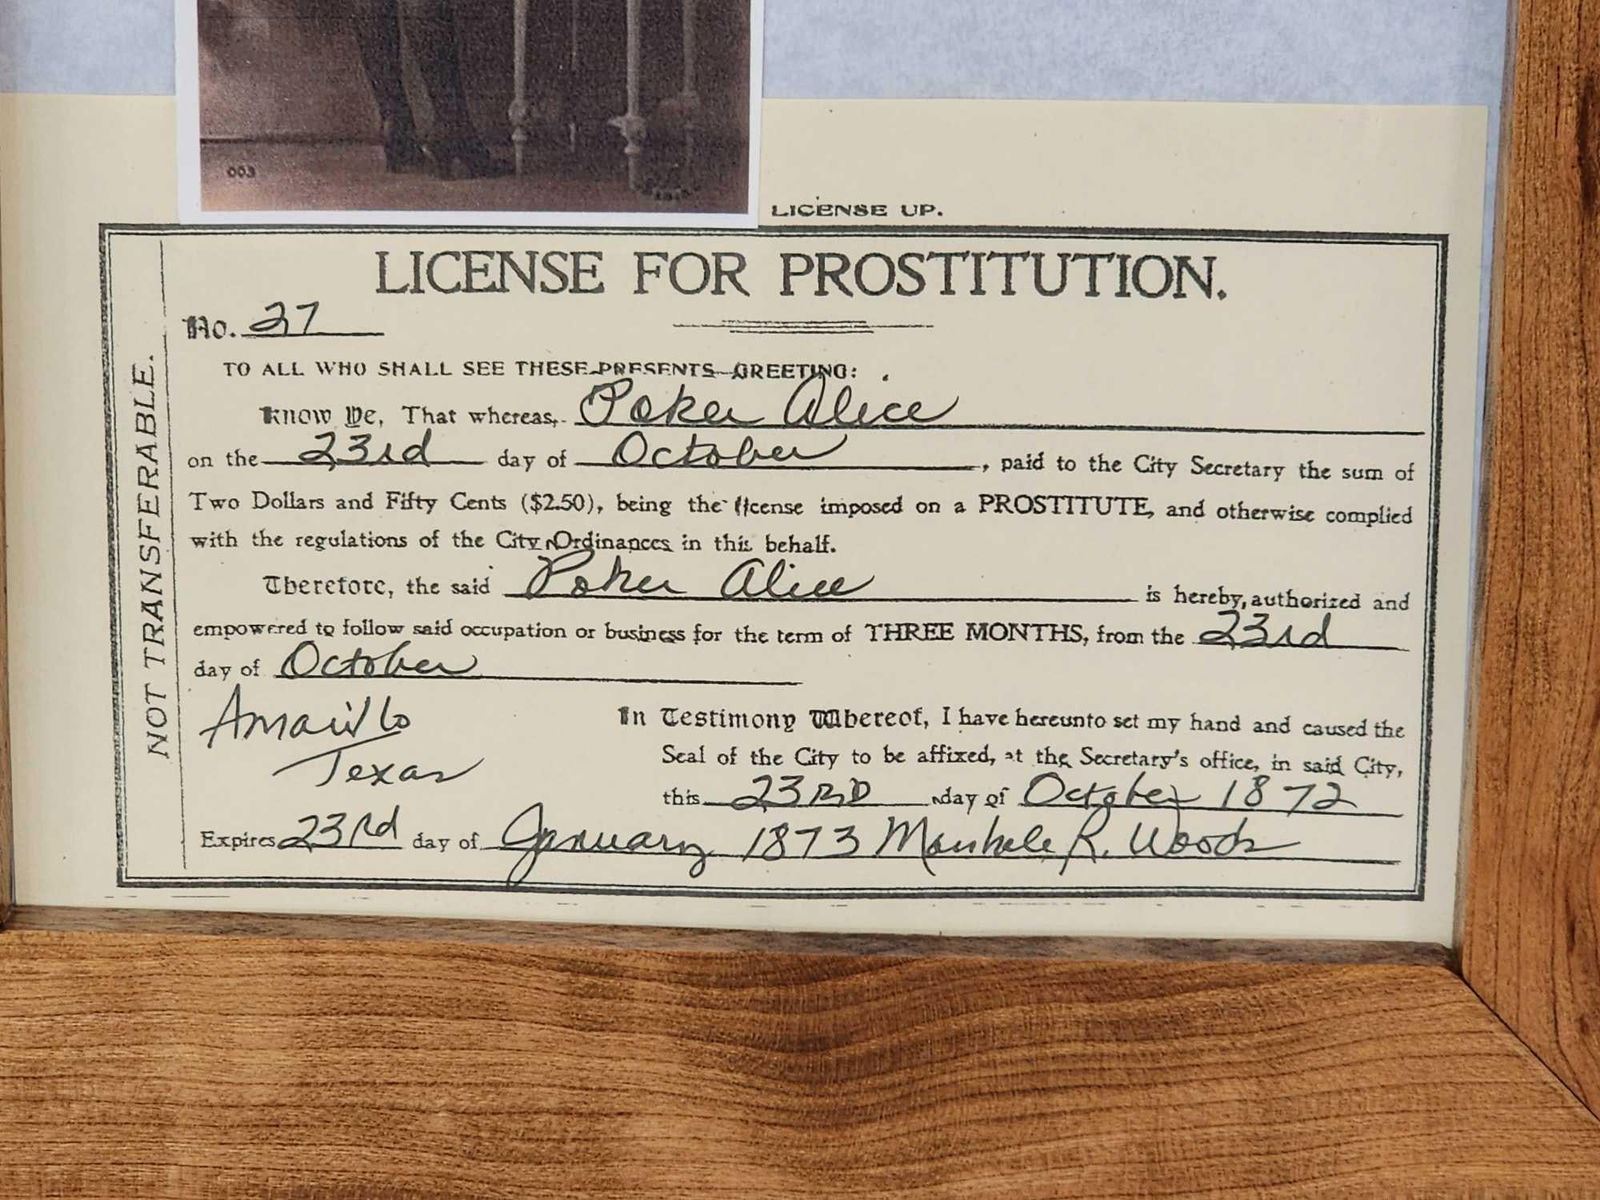 003
LICENSE UP.
LICENSE FOR PROSTITUTION.
No. 27
TO ALL WHO SHALL SEE THESE PRESENTS GREETING:
Know Ye, That whereas, Poker Alice
on the 23rd day of October, paid to the City Secretary the sum of
Two Dollars and Fifty Cents ($2.50), being the license imposed on a PROSTITUTE, and otherwise complied
with the regulations of the City Ordinances in this behalf.
Therefore, the said Poker Alice is hereby, authorized and
empowered to follow said occupation or business for the term of THREE MONTHS, from the 23rd
day of October
Amarillo
Texas
In Testimony Whereof, I have hereunto set my hand and caused the
Seal of the City to be affixed, at the Secretary's office, in said City,
this 23RD day of October 1872
Expires 23rd day of January 1873 R. Woods
NOT TRANSFERABLE.